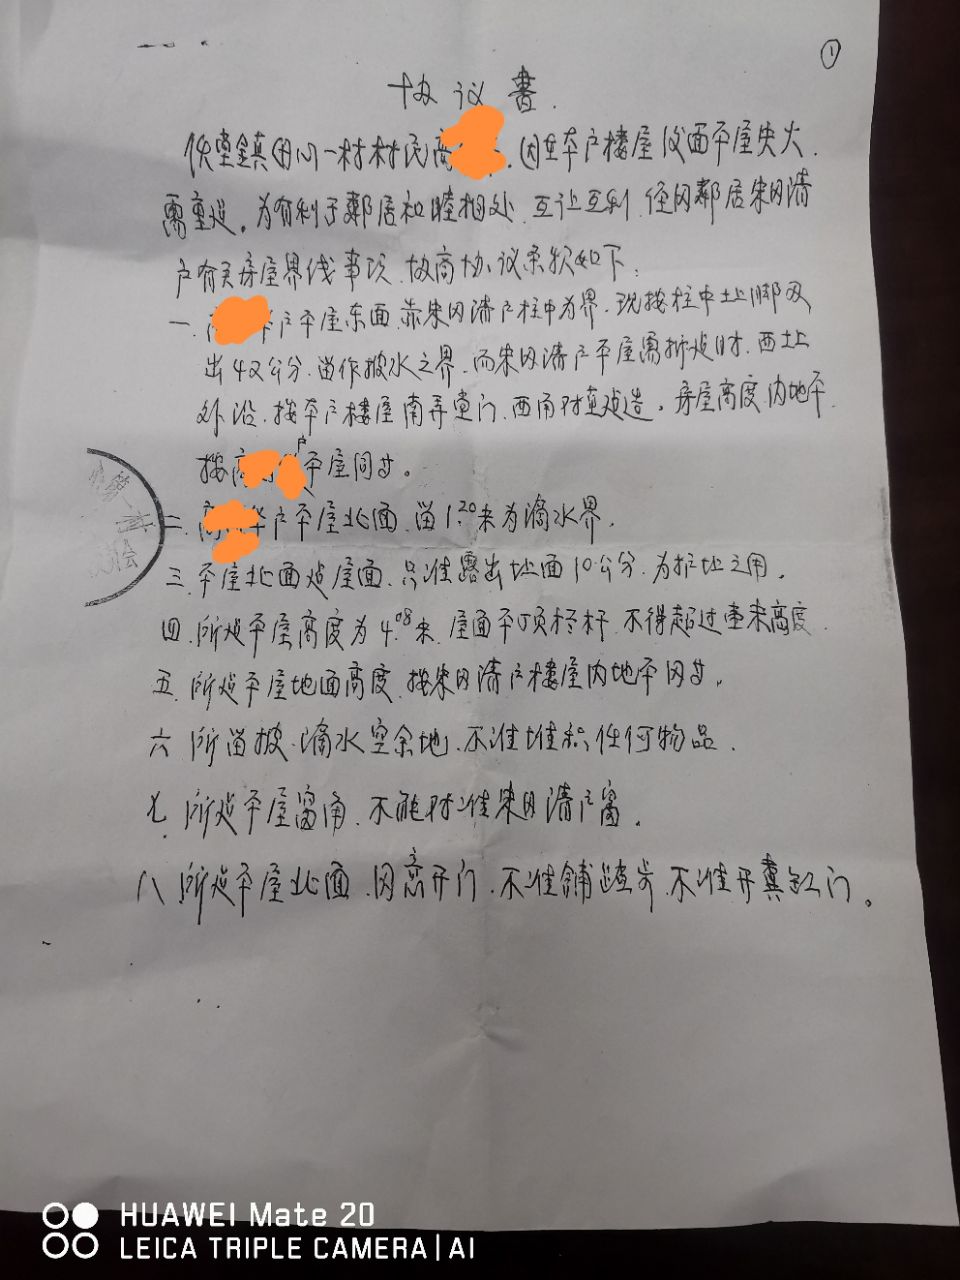 ①
协议书
佛堂镇田心一村村民高 因在本户楼屋仪面平屋失火
需重造。为有利于邻居和睦相处、互让互利、经同邻居朱日清
户有关房屋界线事项、协商协议条款如下:
一、户平屋东面、靠朱日清户柱中为界、现按柱中
出42公分、留作披水之界、而朱日清户平屋需拆造时、西
外沿、按本户楼屋南弄 门、西角对直 造。房屋高度、内地平
按高 户平屋同 。
二、高 华户平屋北面、留1.20米为滴水界.
三、平屋北面造屋面、只准露出 面10公分、为护 之用.
四、所造平屋高度为4.08米、屋面平顶 杆、不得超过壹米高度
五、所造平屋地面高度、按朱日清户楼屋内地平同 .
六、所留披、滴水空余地、不准堆积任何物品.
七、所造平屋窗角、不能对准朱日清户窗.
八、所造平屋北面、同意开门、不准铺踏步、不准开粪缸门。
HUAWEI Mate 20
LEICA TRIPLE CAMERA | AI